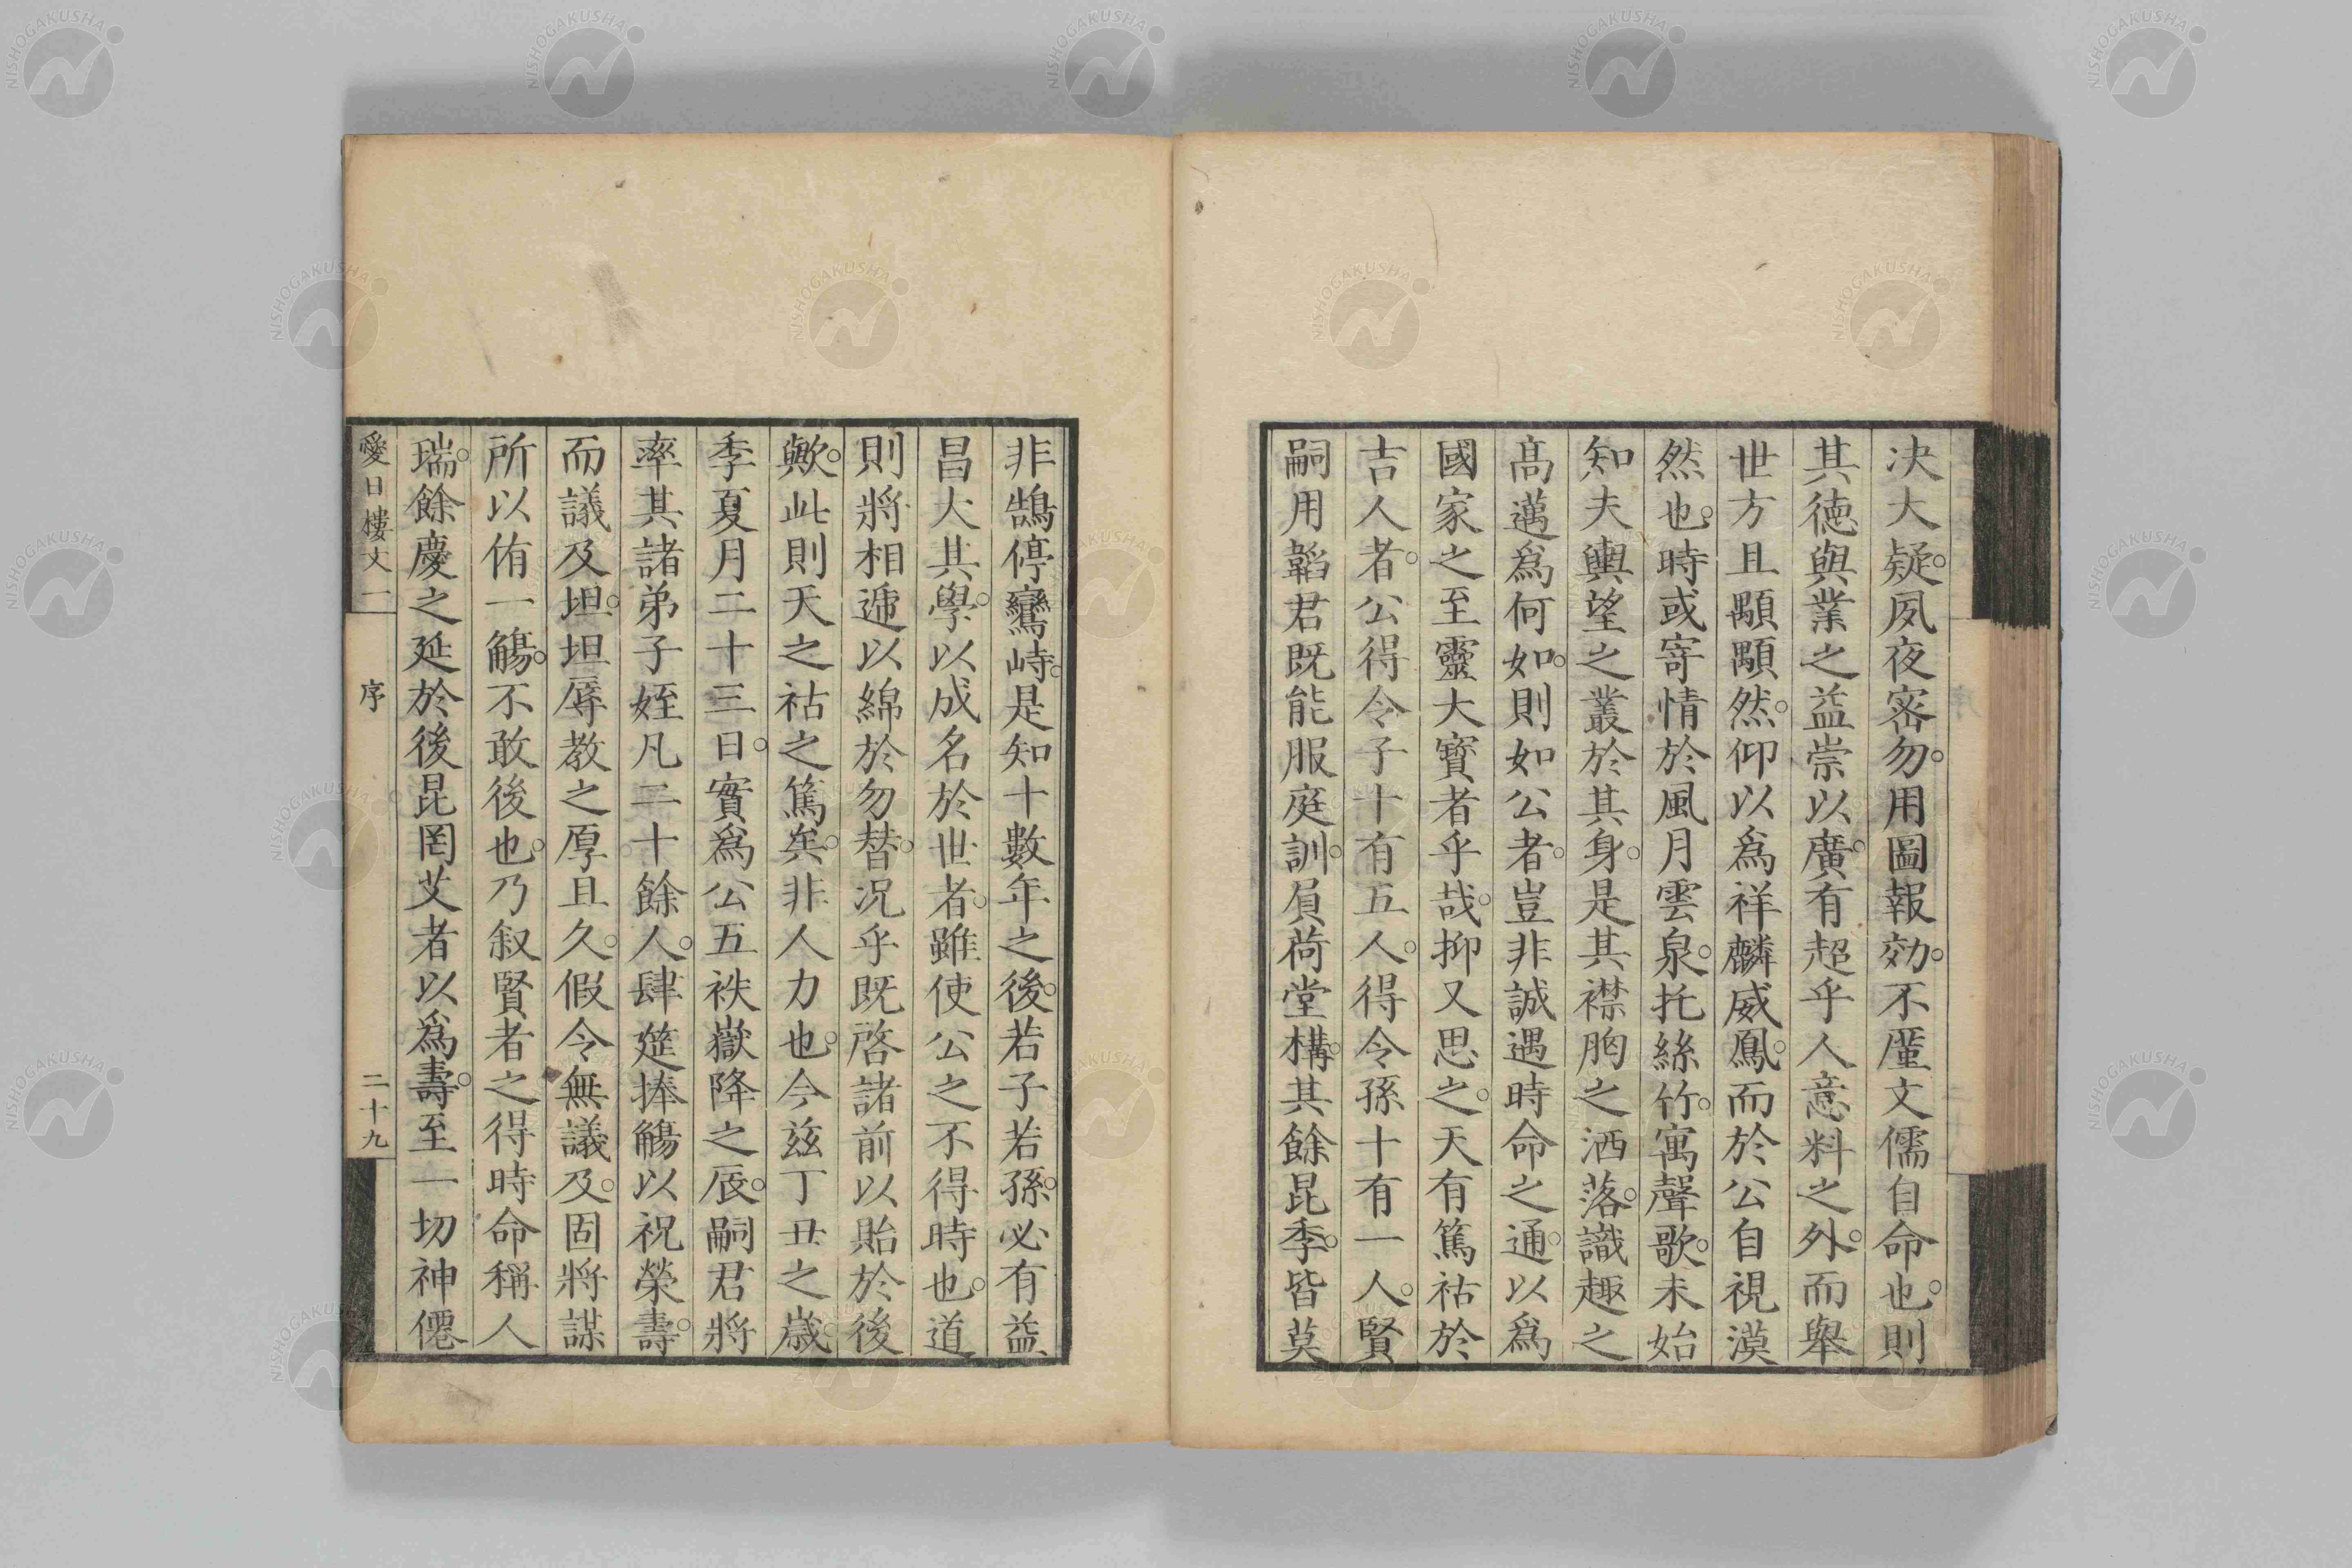 决大疑。夙夜密勿。用圖報効。不厪文儒自命也。則
其徳與業之益崇以廣。有超乎人意料之外。而舉
世方且顒顒然。仰以爲祥麟威鳳。而於公自視漠
然也。時或寄情於風月雲泉。托絲竹。寓聲歌。未始
知夫輿望之叢於其身。是其襟胸之洒落。識趣之
高邁爲何如。則如公者。豈非誠遇時命之通。以爲
國家之至靈大寶者乎哉。抑又思之。天有篤祜於
吉人者。公得令子十有五人。得令孫十有一人。賢
嗣用韜君既能服庭訓。負荷堂構。其餘昆季。皆莫
非鵠停鸞峙。是知十數年之後。若子若孫。必有益
昌大其學。以成名於世者。雖使公之不得時也。道
則將相遞以綿於勿替。况乎既啓諸前以貽於後
歟。此則天之祜之篤矣。非人力也。今茲丁丑之歲
季夏月二十三日。實爲公五袟嶽降之辰。嗣君將
率其諸弟子姪凡二十餘人。肆筵捧觴以祝榮壽。
而議及坦。坦辱教之厚且久。假令無議及。固將謀
所以侑一觴。不敢後也。乃叙賢者之得時命稱人
瑞。餘慶之延於後昆罔艾者以爲壽。至一切神僊
愛日樓文一 序 二十九
NISHOGAKUSHA